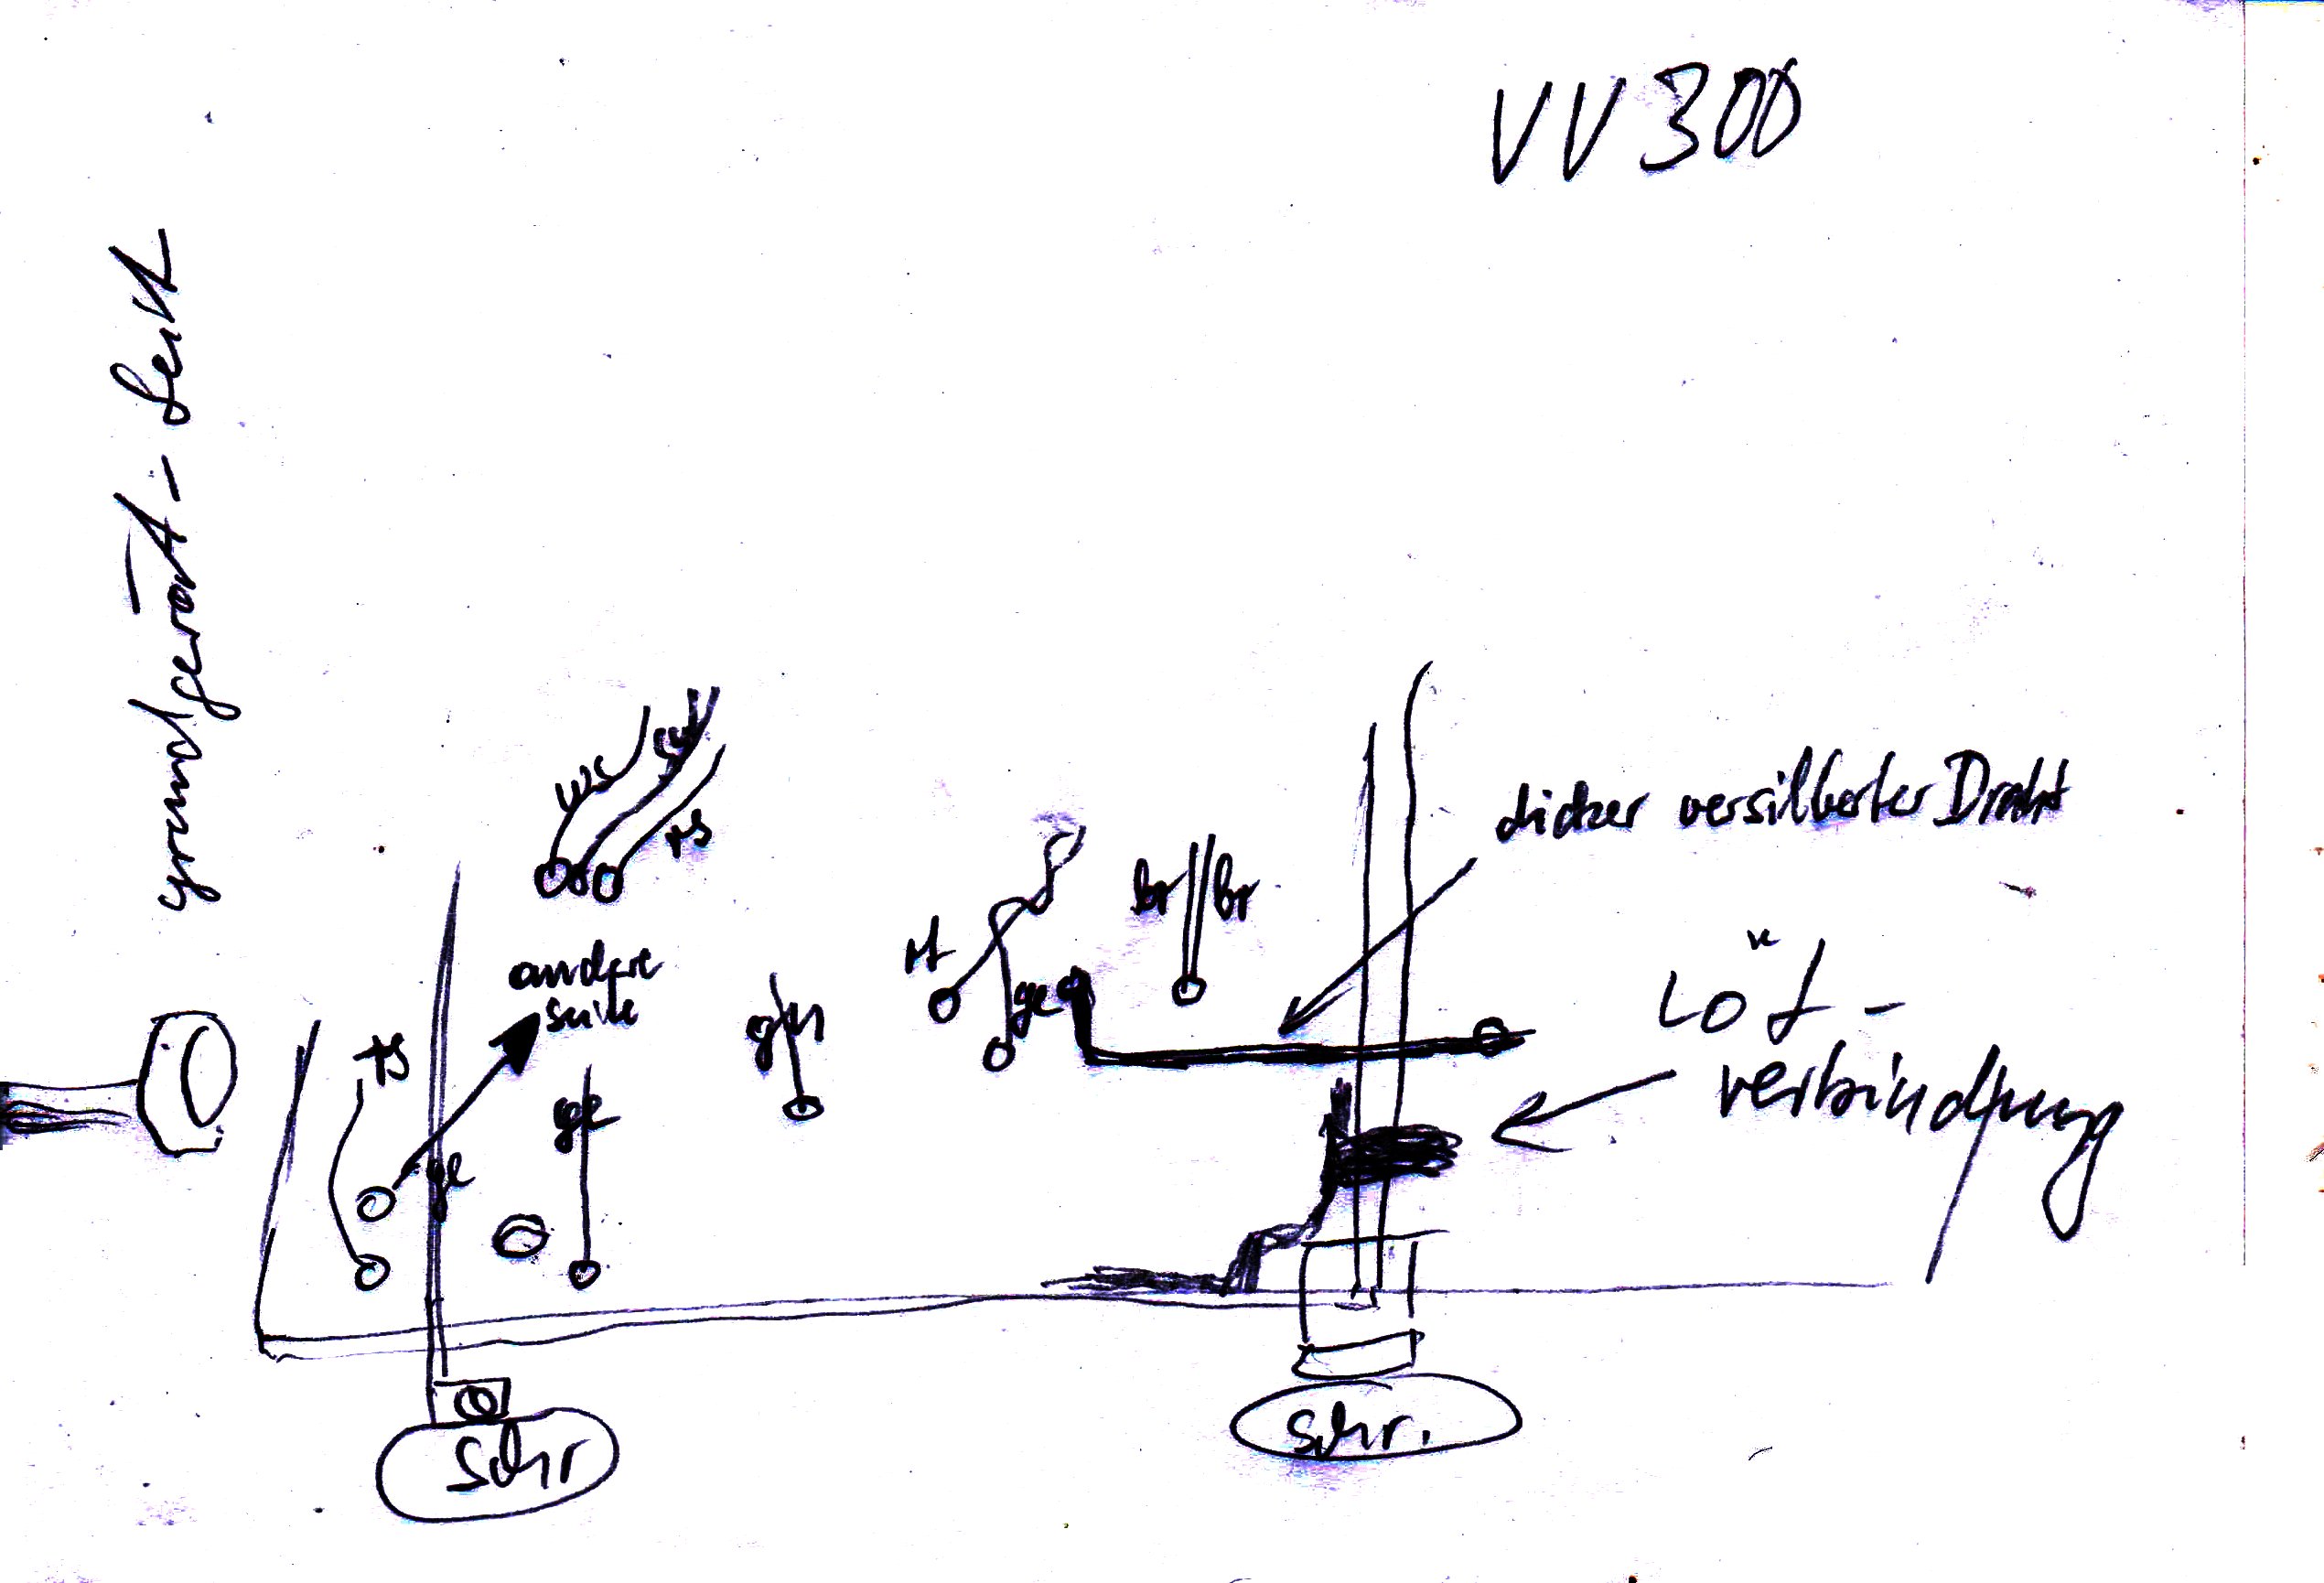 VV 300
grundgerät-Seite
ws
sw
rs
dicker versilberter Draht
rt
ge
br
br
andere
seite
grn
Löt-
verbindung
rs
ge
ge
Schr
Schr.